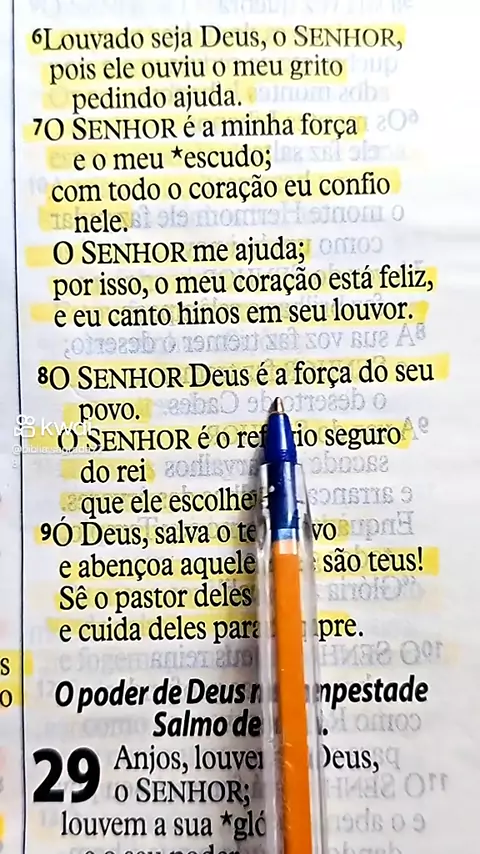 6Louvado seja Deus, o SENHOR,
pois ele ouviu o meu grito
pedindo ajuda.
7O SENHOR é a minha força
e o meu *escudo;
com todo o coração eu confio
nele.
O SENHOR me ajuda;
por isso, o meu coração está feliz,
e eu canto hinos em seu louvor.
8O SENHOR Deus é a força do seu
povo.
kwai
O SENHOR é o ref io seguro
do rei
que ele escolhe
9Ó Deus, salva o te vo
e abençoa aquele são teus!
Sê o pastor deles
e cuida deles para pre.
s
o
O poder de Deus mpestade
Salmo de
29 Anjos, louve Deus,
o SENHOR;
louvem a sua *gló